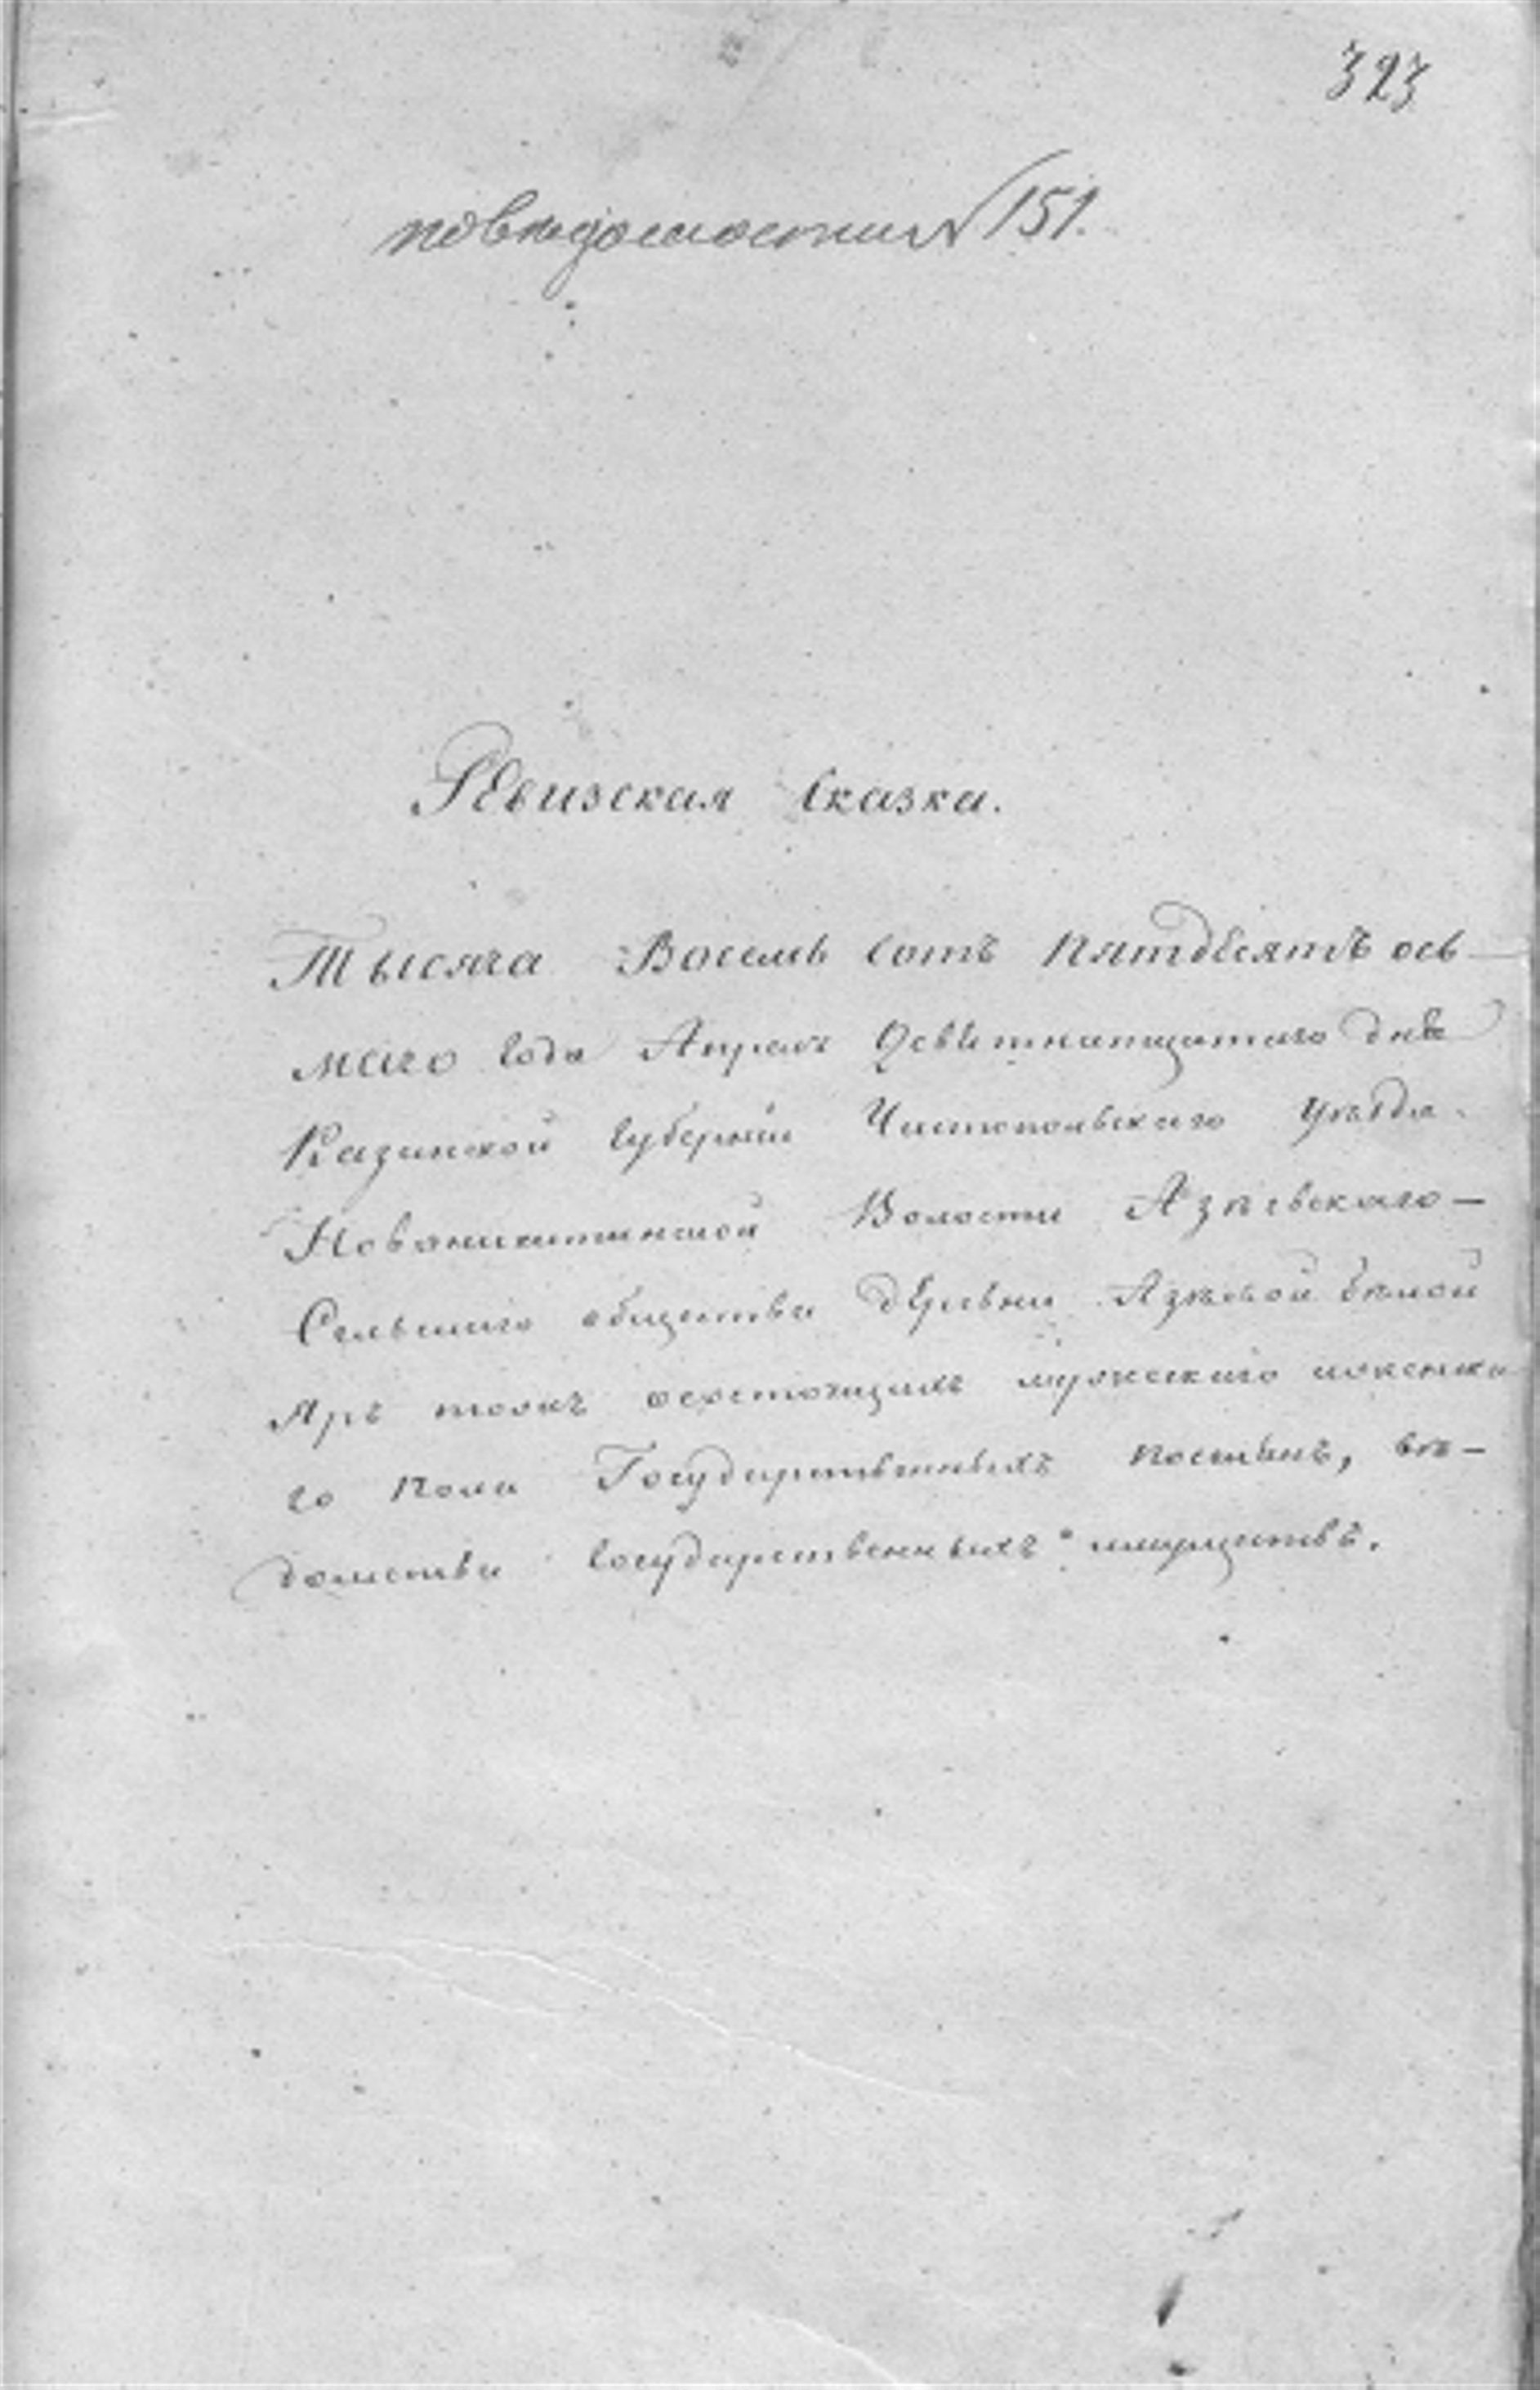 323
по ведомости № 151.
Ревизская Сказка.
Тысяча Восемь сотъ пятдесятъ ось-
маго года Апреля Девятнатцатаго дня
Казанской губернiи Чистопольскаго уѣзда
Новоникитинской Волости Азѣевскаго-
Сельскаго общества деревни Азѣевой бѣлой
Яръ тожъ о состоящихъ мужескаго и женска
го пола Государственныхъ поселянъ, вѣ-
домства государственныхъ имуществъ.